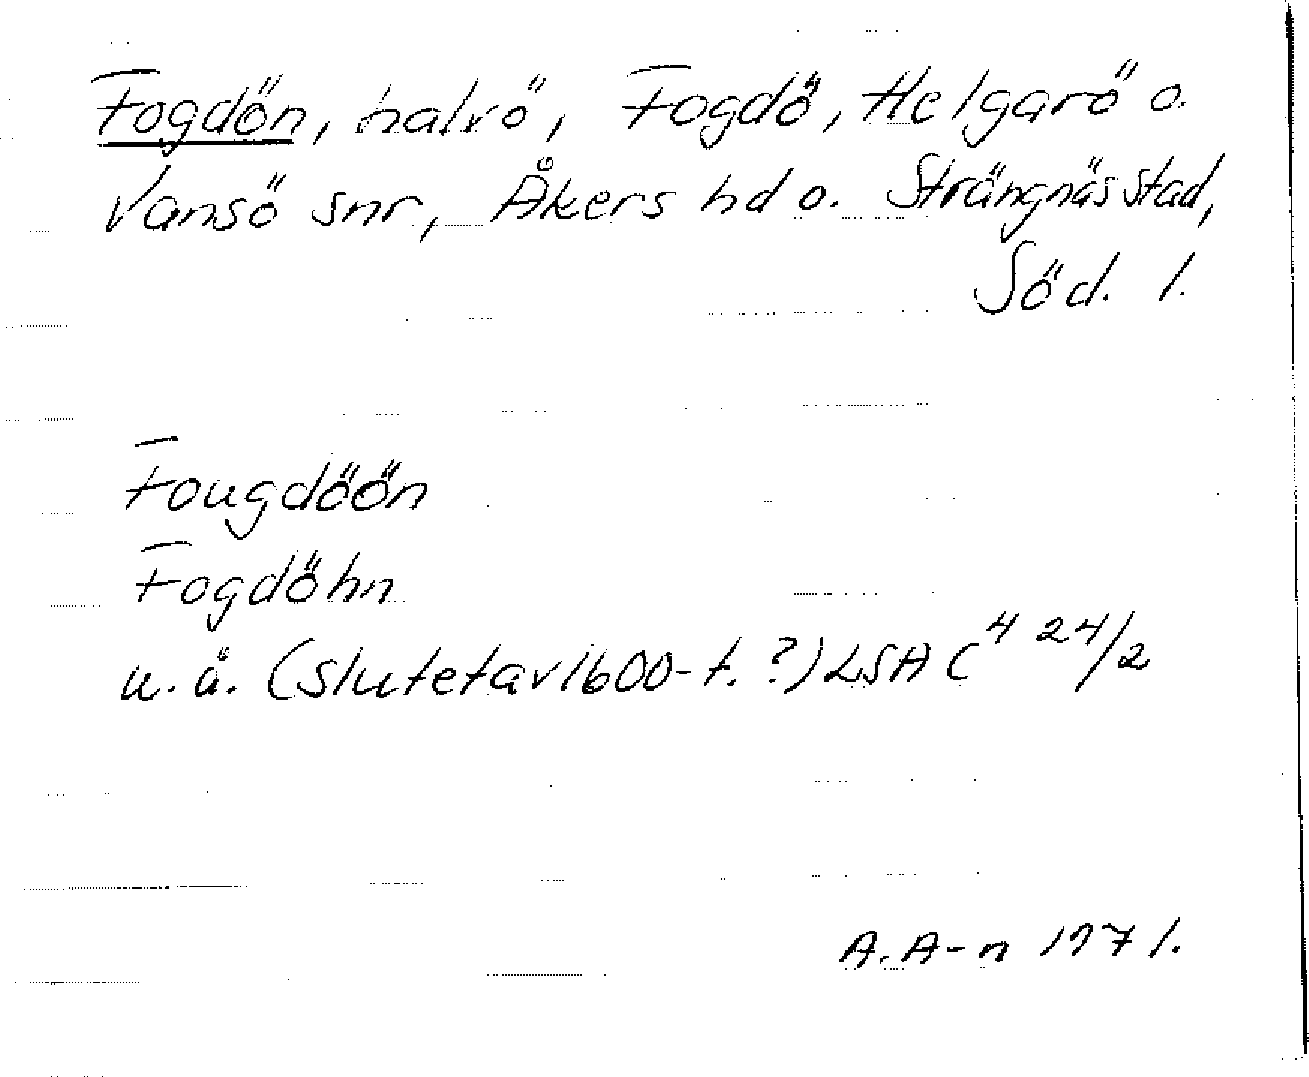 Fogdön, halvö, Fogdö, Helgarö o.
Vansö snr, Åkers hd o. Strängnäs stad,
Söd. l.
Fougdöön
Fogdöhn
u. å. (slutet av 1600-t. ?) LSA C⁴ 24/2
A. A-n 1971.